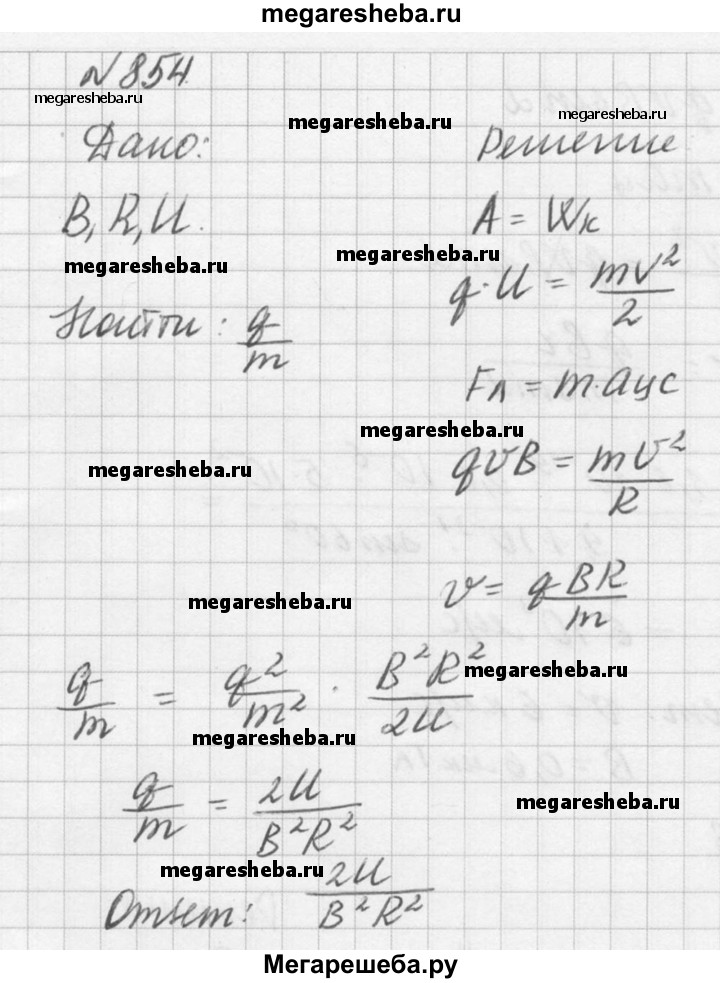 megaresheba.ru
№854
megaresheba.ru
megaresheba.ru
Дано:
Решение
B, R, U.
A = Wк
megaresheba.ru
megaresheba.ru
q·U = mv²/2
Найти: q/m
Fл = m·aцс
megaresheba.ru
megaresheba.ru
qvB = mv²/R
megaresheba.ru
v = qBR/m
megaresheba.ru
q/m = q²/m² · B²R²/2U
megaresheba.ru
q/m = 2U/B²R²
megaresheba.ru
megaresheba.ru
Ответ: 2U/B²R²
Мегарешеба.ру